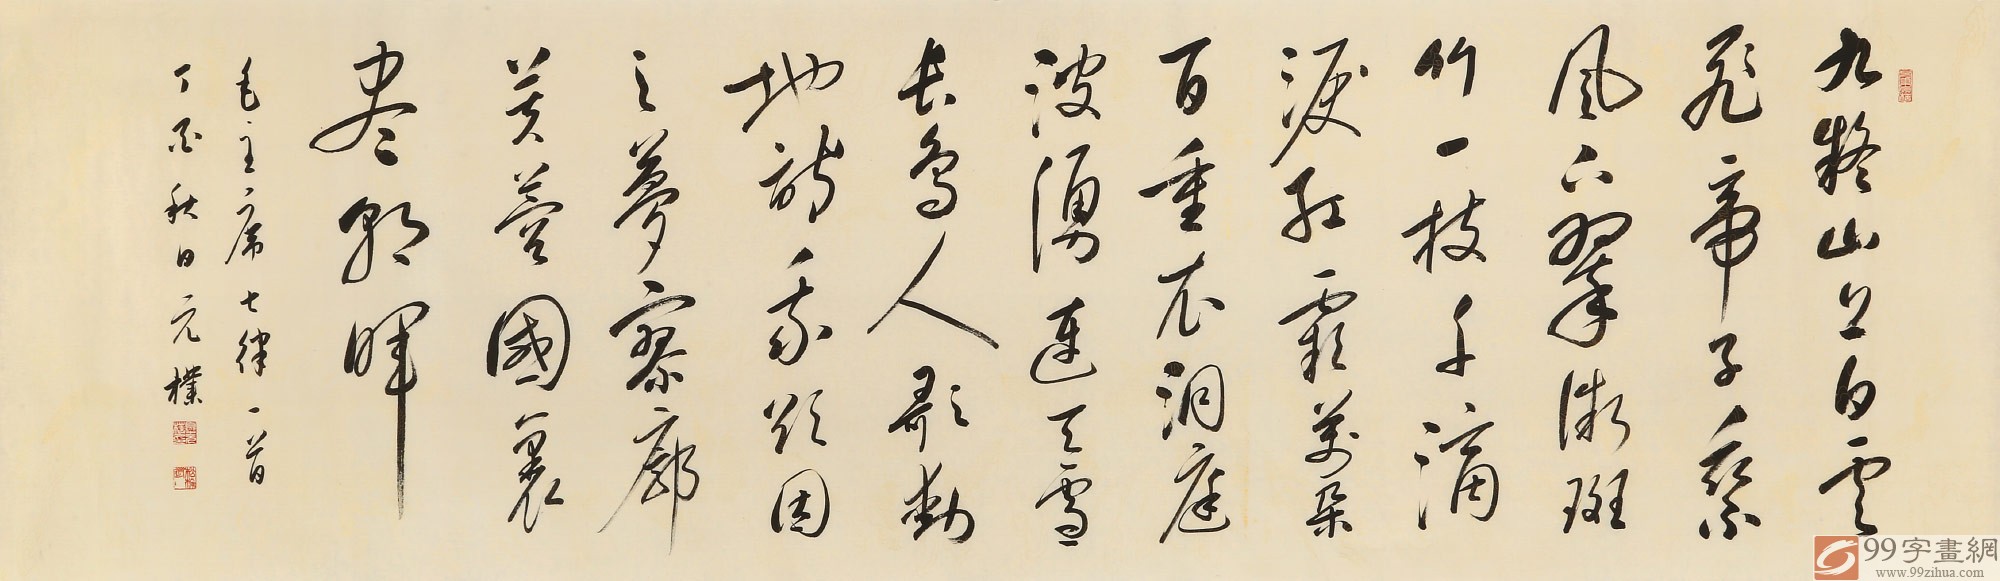 九嶷山上白雲
飛帝子乘
風下翠微斑
竹一枝千滴
淚紅霞萬朵
百重衣洞庭
波湧連天雪
長島人歌動
地詩我欲因
之夢寥廓
芙蓉國裏
盡朝暉
毛主席七律一首
丁酉秋日元樸
99字畫網
www.99zihua.com